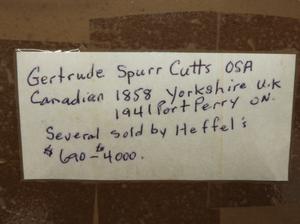 Gertrude Spurr Cutts OSA
Canadian 1858 Yorkshire U.K
1941 Port Perry ON.
Several sold by Heffel's
$690 - to 4000.